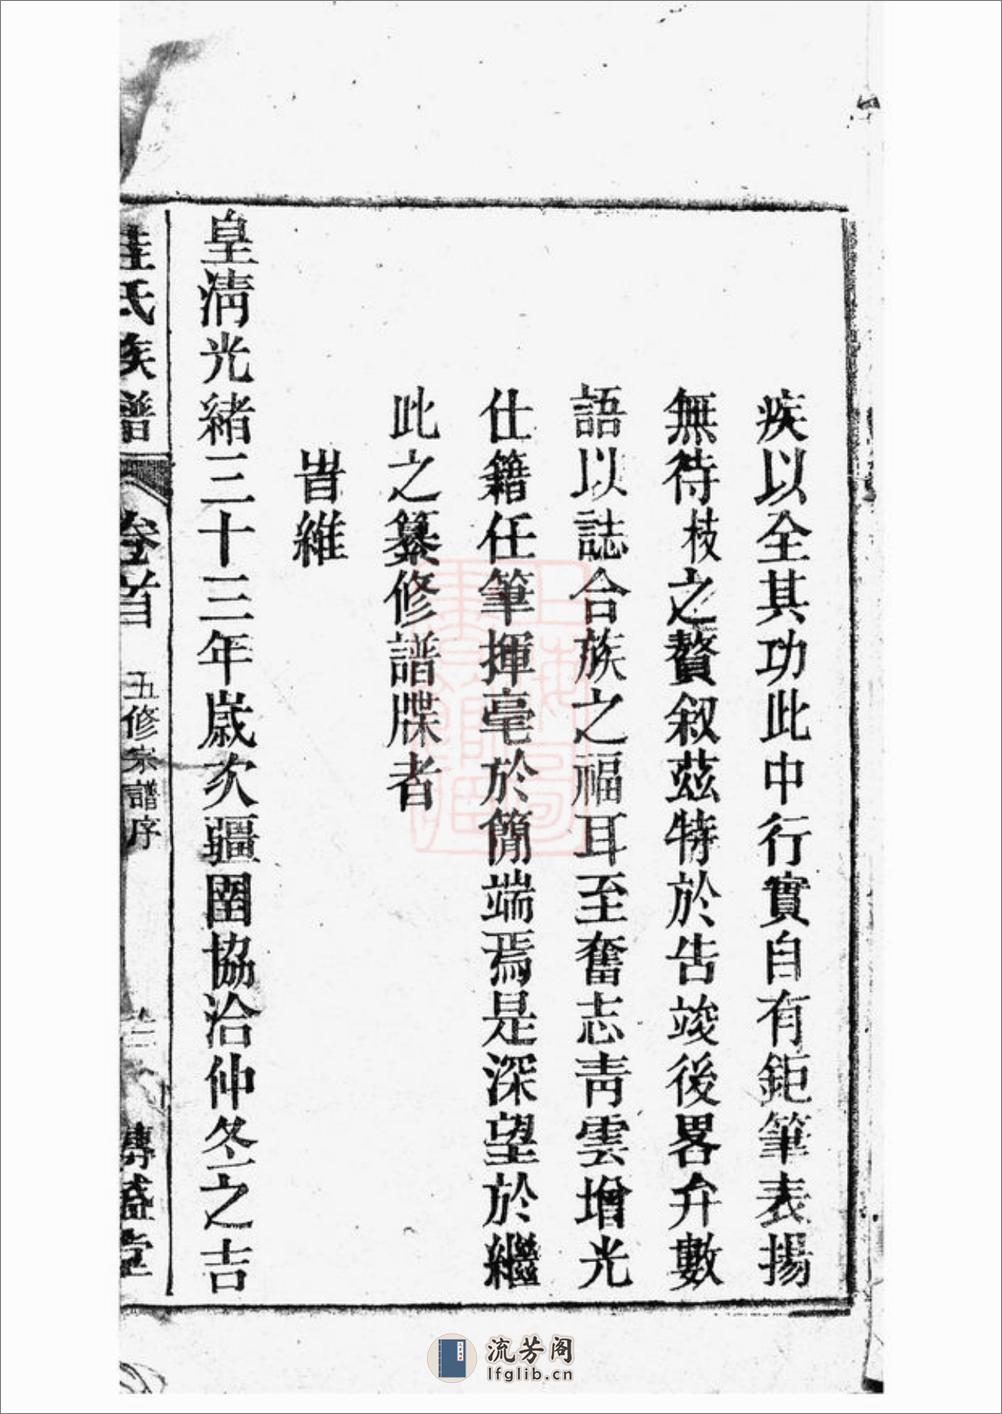 疾以全其功此中行實自有鉅筆表揚
無待枝之贅叙茲特於告竣後畧弁數
語以誌合族之福耳至奮志靑雲增光
仕籍任筆揮毫於簡端焉是深望於繼
此之纂修譜牒者
旹維
皇淸光緒三十三年歲次疆圉協洽仲冬之吉
氏族譜
卷首
五修宗譜序
傳盛堂
流芳阁
lfglib.cn